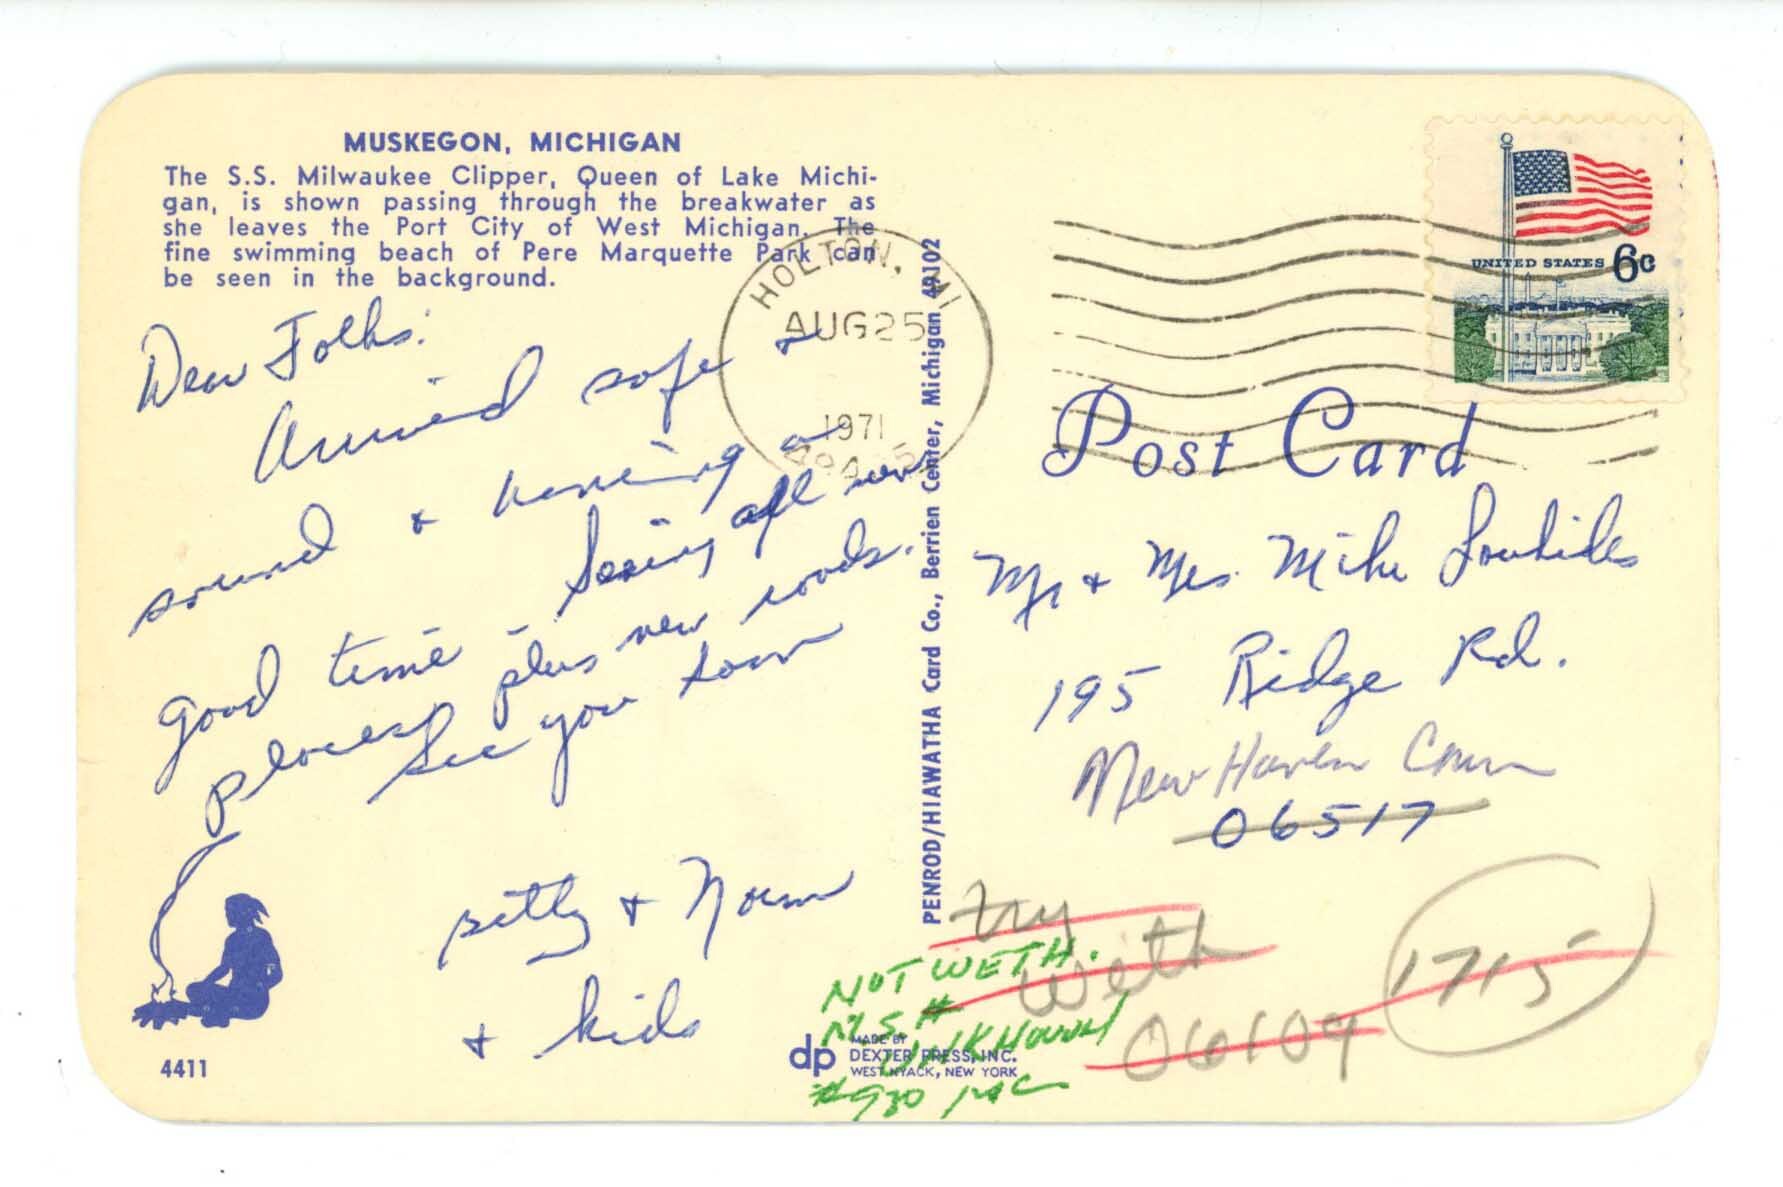 MUSKEGON, MICHIGAN
The S.S. Milwaukee Clipper, Queen of Lake Michi-
gan, is shown passing through the breakwater as
she leaves the Port City of West Michigan. The
fine swimming beach of Pere Marquette Park can
be seen in the background.
Dear Folks:
Arrived safe &
sound & having a
good time - Seeing all
places plus new roads.
See you soon
Betty & Norm
& kids
4411
PENROD/HIAWATHA Card Co., Berrien Center, Michigan 49102
HOLTON, MI
AUG 25
1971
UNITED STATES 6c
Post Card
Mr & Mrs. Mike
195 Ridge Rd.
New Haven Conn
06517
try
Weth
06109
1715
NOT WETH.
dp
MADE BY
DEXTER PRESS, INC.
WEST NYACK, NEW YORK